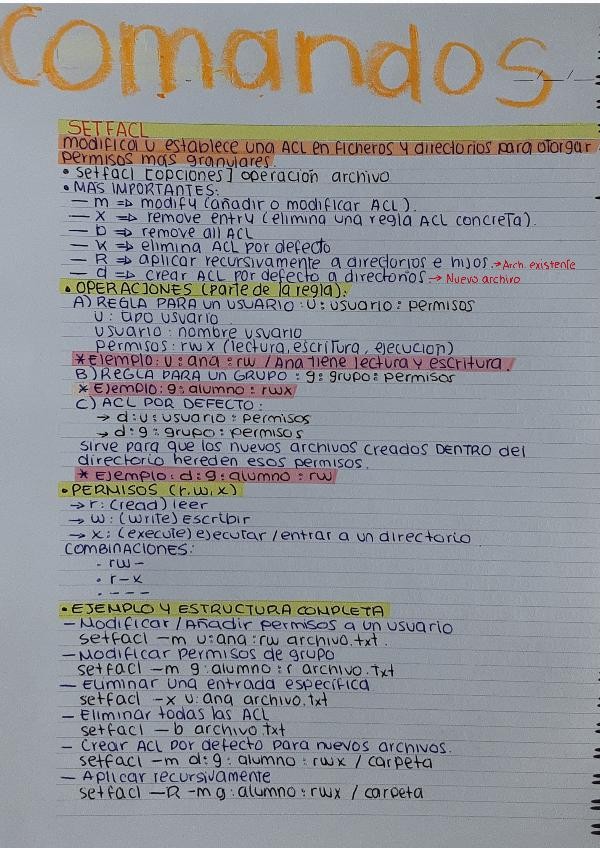 Comandos
SETFACL
modifica u establece una ACL en ficheros y directorios para otorgar
permisos mas granulares.
• setfacl [opciones] operación archivo
• MAS IMPORTANTES:
— m => modify (añadir o modificar ACL).
— x => remove entry (elimina una regla ACL concreta).
— b => remove all ACL
— K => elimina ACL por defecto
— R => aplicar recursivamente a directorios e hijos. → Arch. existente
— d => crear ACL por defecto a directorios → Nuevo archivo
• OPERACIONES (parte de la regla):
A) REGLA PARA UN USUARIO: U: usuario: permisos
U: tipo usuario
usuario: nombre usuario
permisos: rwx (lectura, escritura, ejecución)
* Ejemplo: u: ana: rw / Ana tiene lectura y escritura.
B) REGLA PARA UN GRUPO: g: grupo: permisos
* Ejemplo: g: alumno: rwx
C) ACL POR DEFECTO:
→ d:u: usuario: permisos
→ d:g: grupo: permisos
sirve para que los nuevos archivos creados DENTRO del
directorio hereden esos permisos.
* Ejemplo: d:g: alumno: rw
• PERMISOS (r,w,x)
→ r: (read) leer
→ w: (write) escribir
→ x: (execute) ejecutar /entrar a un directorio
COMBINACIONES:
• rw-
• r-x
• ---
• EJEMPLO Y ESTRUCTURA COMPLETA
— Modificar /Añadir permisos a un usuario
setfacl —m u:ana:rw archivo.txt
— Modificar permisos de grupo
setfacl —m g:alumno:r archivo.txt
— Eliminar una entrada especifica
setfacl -x u:ana archivo.txt
— Eliminar todas las ACL
setfacl —b archivo.txt
— Crear ACL por defecto para nuevos archivos.
setfacl —m d:g:alumno:rwx /carpeta
— Aplicar recursivamente
setfacl —R -m g:alumno:rwx /carpeta